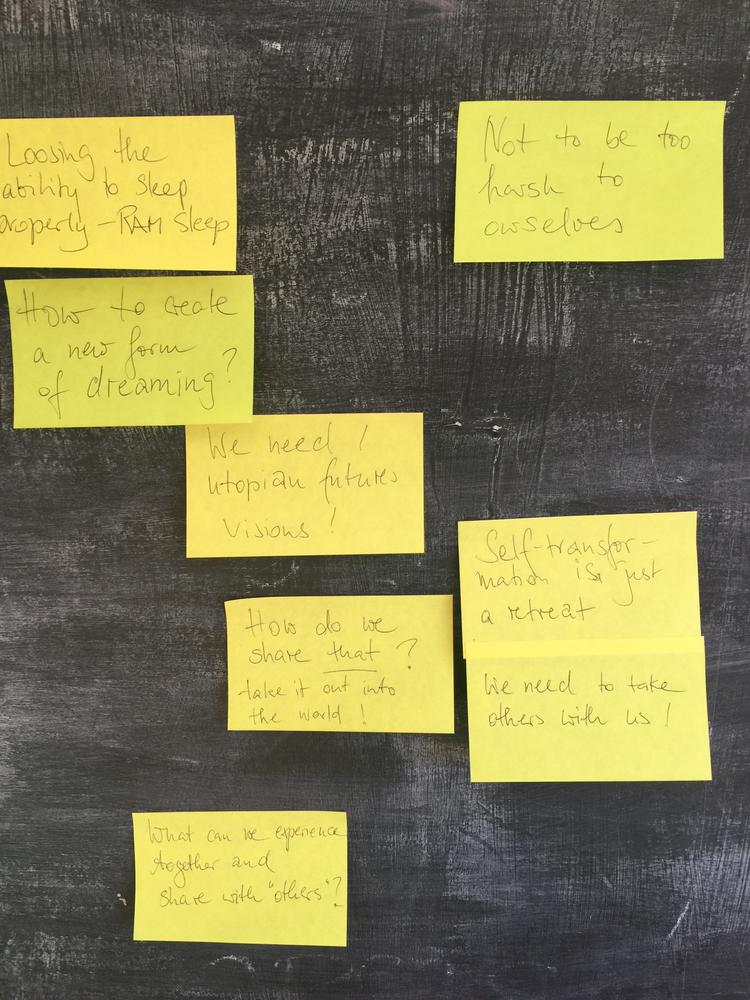 Loosing the
ability to Sleep
properly - RAM Sleep
Not to be too
harsh to
ourselves
How to create
a new form
of dreaming?
We need !
utopian futures
Visions !
Self-transfor-
mation is just
a retreat
How do we
share that ?
take it out into
the world !
We need to take
others with us !
What can we experience
together and
share with "others"?